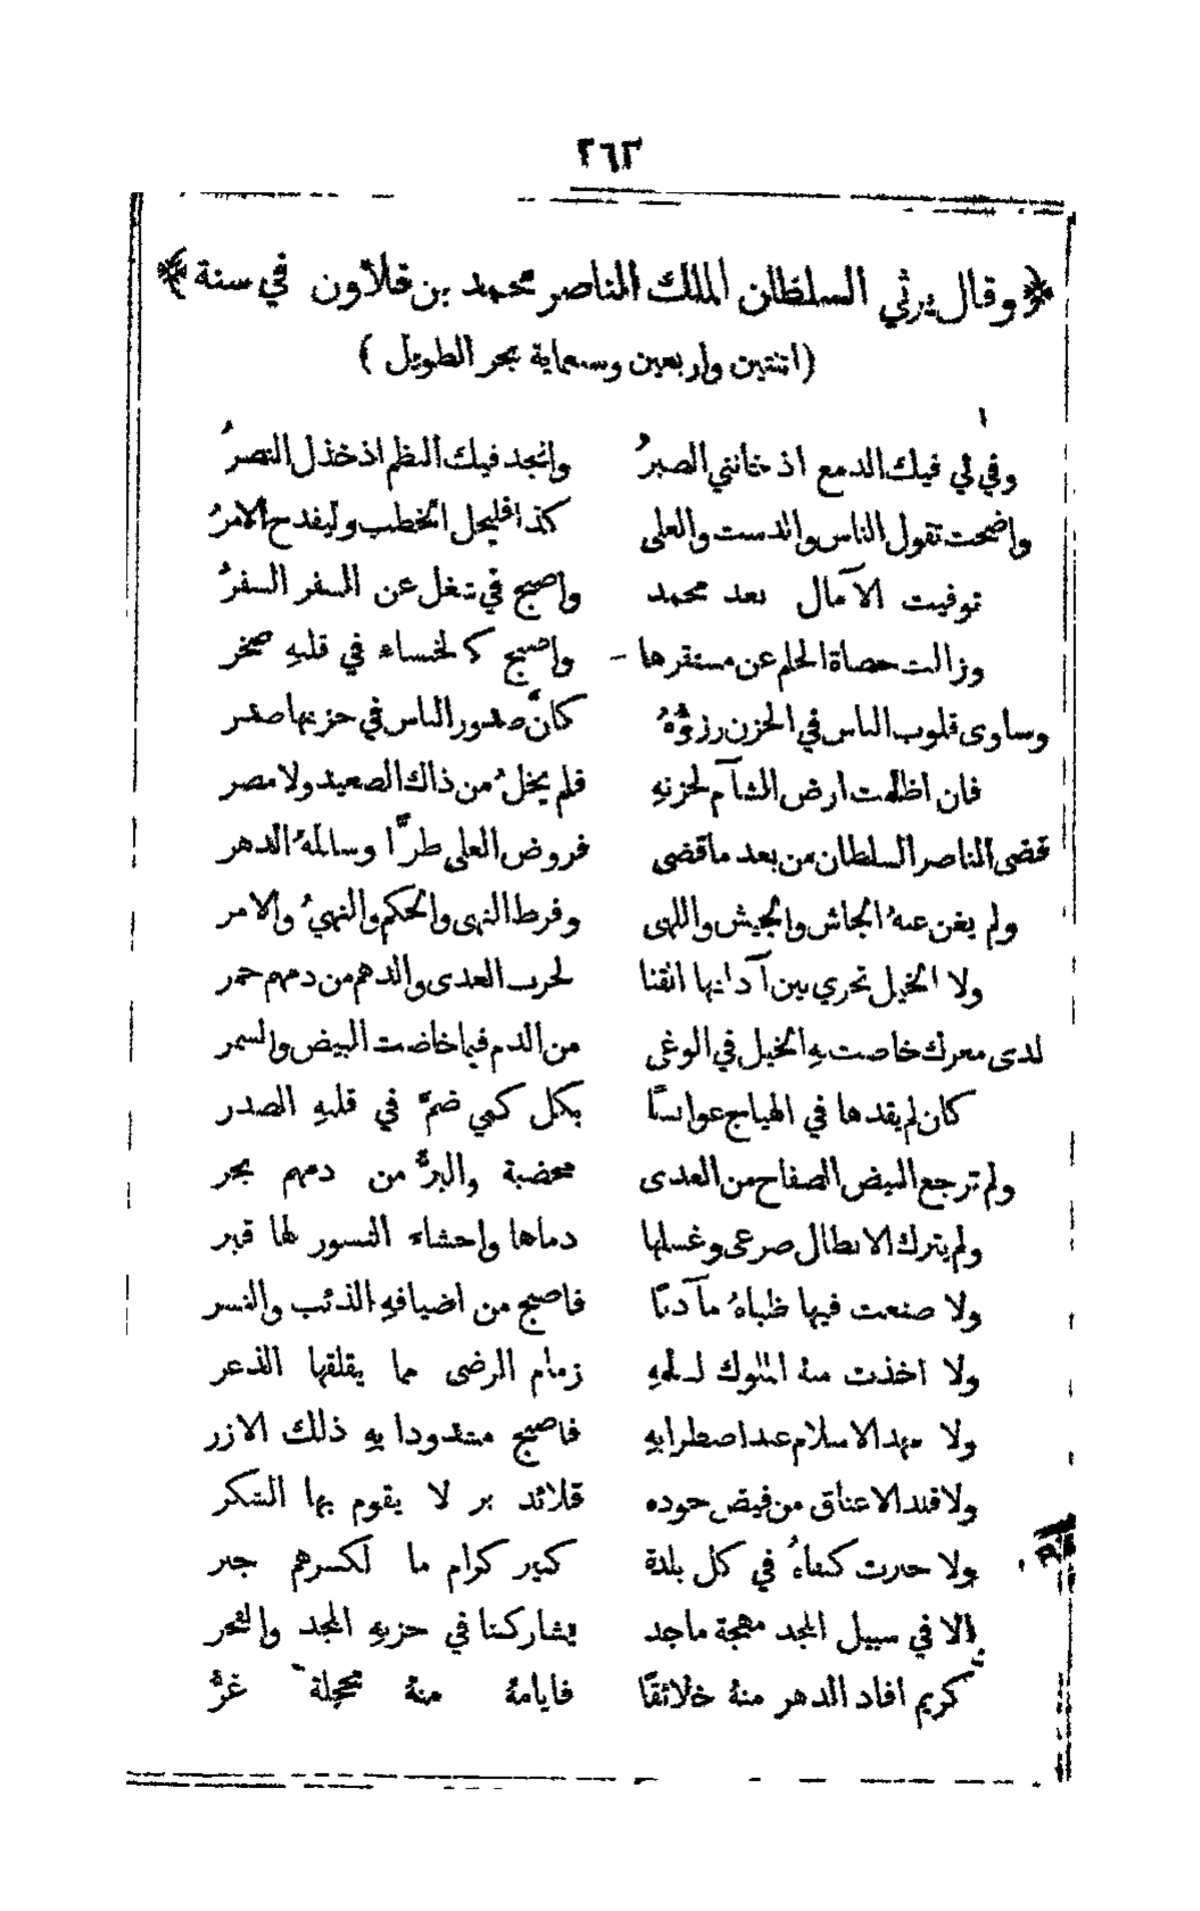 ٢٦٣
﴿ وقال يرثي السلطان الملك الناصر محمد بن قلاون في سنة ﴾
(اثنتين واربعين وسبعماية بحر الطويل)
وفي لي فيك الدمع اذ خانني الصبرُ وانجد فيك النظم اذ خذل النصرُ
واضحت تقول الناس والدست والعلى كذا فليجل الخطب وليفدح الامرُ
توفيت الآمال بعد محمد واصبح في شغل عن السفر السفرُ
وزالت حصاة الحلم عن مستقرها واصبح كالخنساء في قلبهِ صخر
وساوى قلوب الناس في الحزن رزؤهُ كانَّ صدور الناس في حزنها صدر
فان اظلمت ارض الشآم لحزنهِ فلم يخلُ من ذاك الصعيد ولا مصر
قضى الناصر السلطان من بعد ما قضى فروض العلى طرًّا وسالمهُ الدهر
ولم يغن عنهُ الجاش والجيش واللهى وفرط النهى والحكم والنهيُ والامر
ولا الخيل تجري بين آذانها القنا لحرب العدى والدهم من دمهم حمر
لدى معرك خاضت بهِ الخيل في الوغى من الدم فيما خاضت البيض والسمر
كان لم يقدها في الهياج عوابسًا بكل كمي ضمَّ في قلبهِ الصدر
ولم ترجع البيض الصفاح من العدى مخضبة والبرُّ من دمهم بحر
ولم يترك الابطال صرعى وغسلها دماها واحشاء النسور لها قبر
ولا صنعت فيها ظباهُ مآدبًا فاصبح من اضيافهِ الذئب والنسر
ولا اخذت منهُ الملوك لسلمهِ زمام الرضى مما يقلقها الذعر
ولا مهد الاسلام عند اضطرابهِ فاصبح مشدودا بهِ ذلك الازر
ولا قلد الاعناق من فيض جوده قلائد بر لا يقوم بها الشكر
ولا جبرت كفاهُ في كل بلدة كسير كرام ما لكسرهم جبر
الا في سبيل المجد مهجة ماجد يشاركنا في حزنهِ المجد والفخر
كريم افاد الدهر منهُ خلائقًا فايامهُ منهُ محجلة غرُّ